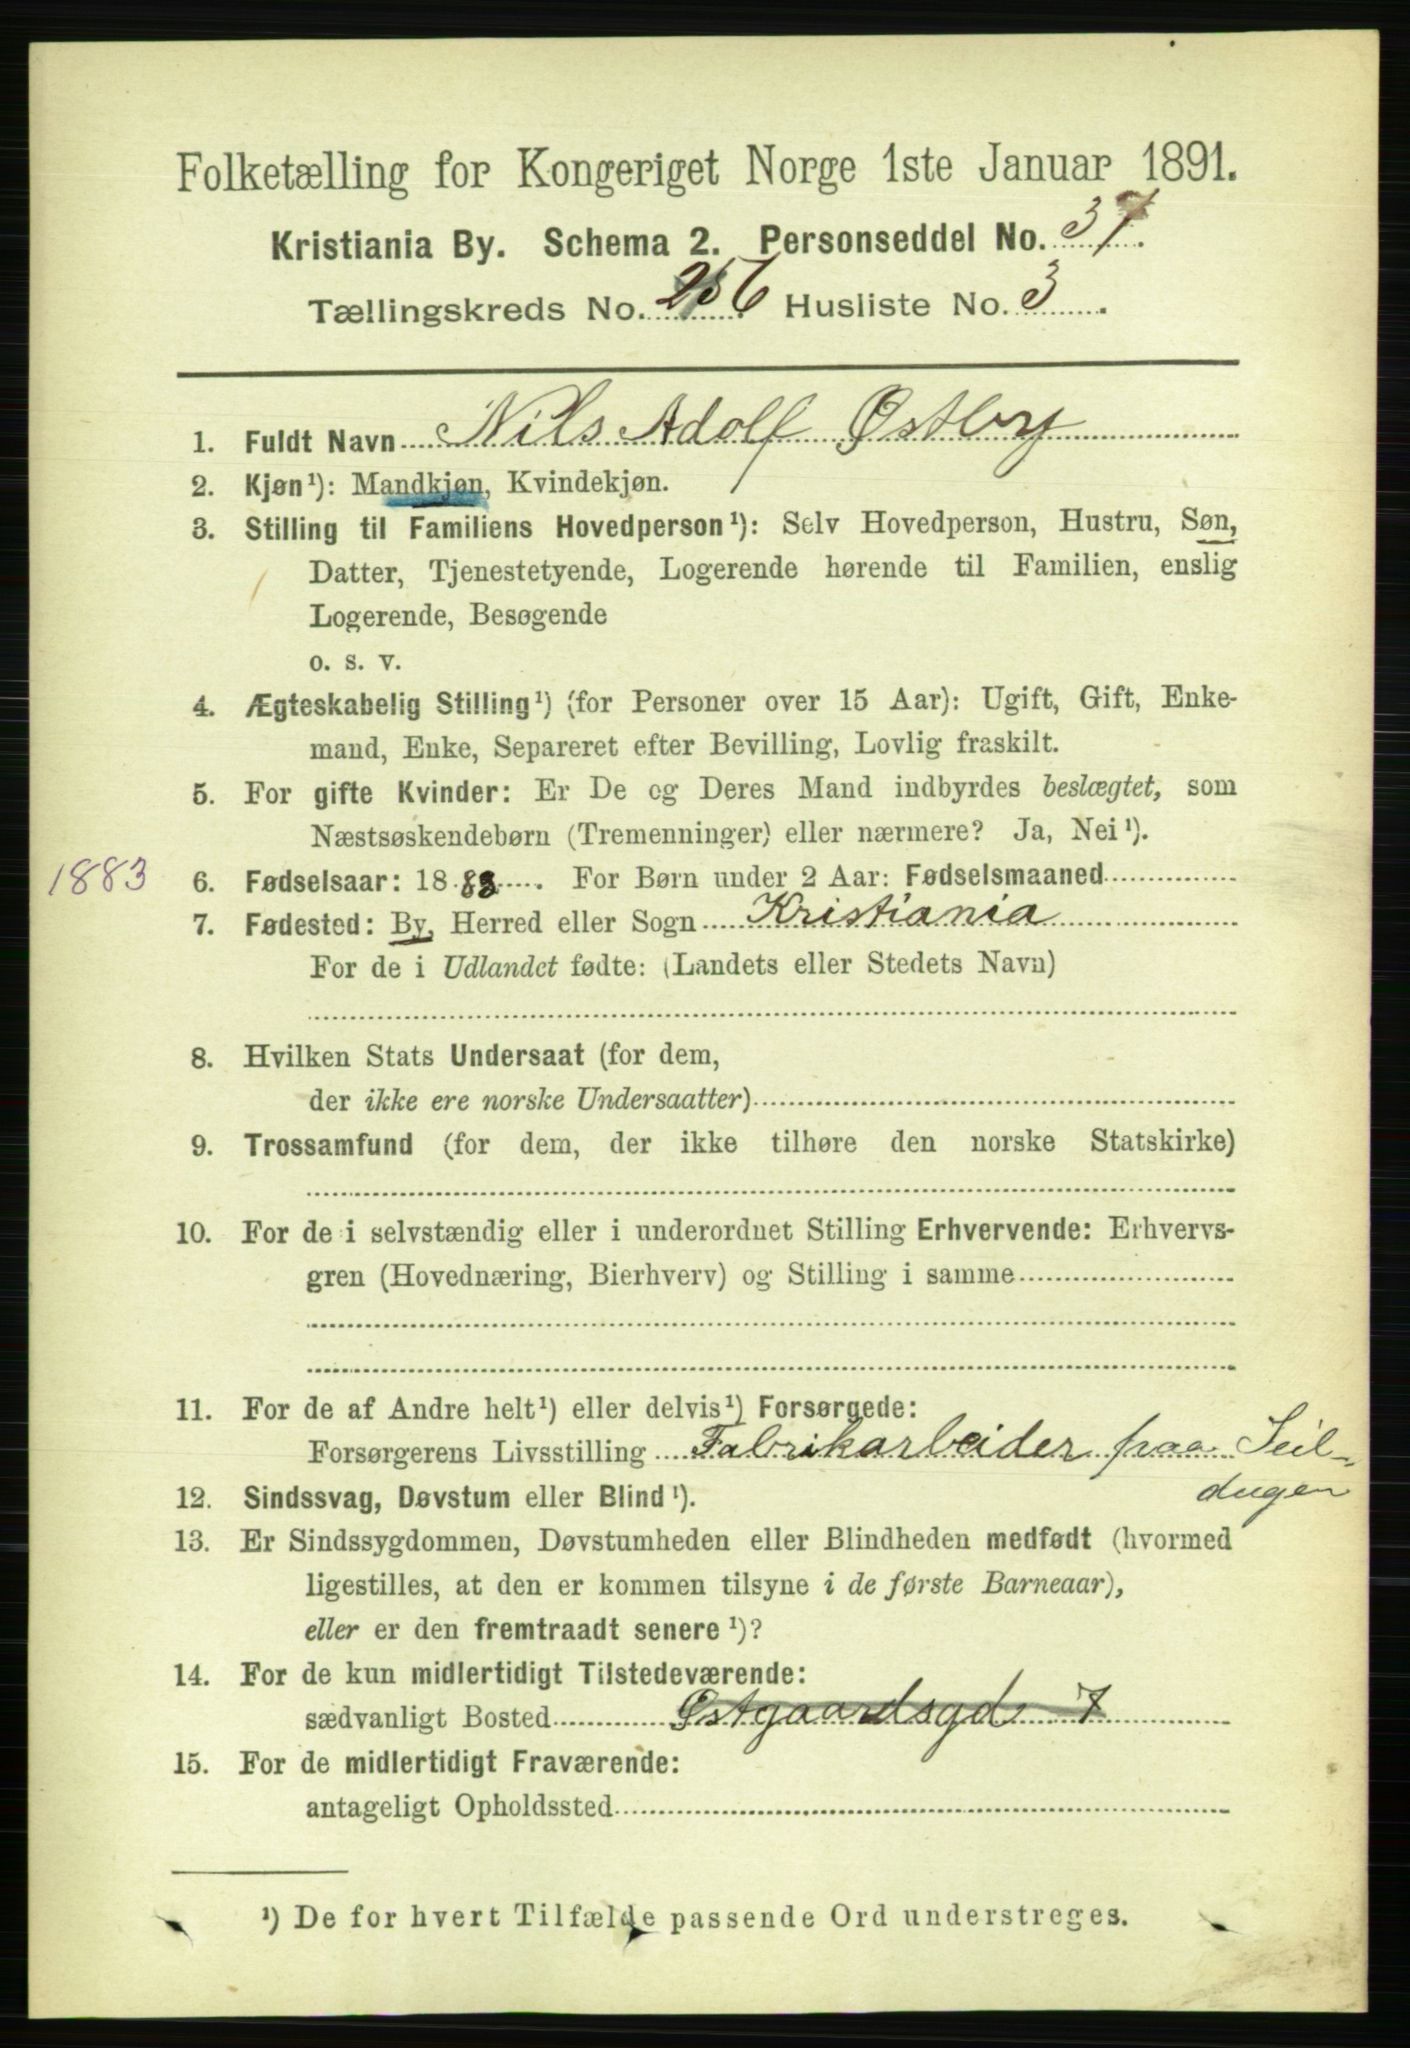 Folketælling for Kongeriget Norge 1ste Januar 1891.
Kristiania By. Schema 2. Personseddel No. 37.
Tællingskreds No. 256 Husliste No. 3.
1. Fuldt Navn Nils Adolf Østby
2. Kjøn¹): Mandkjøn, Kvindekjøn.
3. Stilling til Familiens Hovedperson¹): Selv Hovedperson, Hustru, Søn,
Datter, Tjenestetyende, Logerende hørende til Familien, enslig
Logerende, Besøgende
o. s. v.
4. Ægteskabelig Stilling¹) (for Personer over 15 Aar): Ugift, Gift, Enke-
mand, Enke, Separeret efter Bevilling, Lovlig fraskilt.
5. For gifte Kvinder: Er De og Deres Mand indbyrdes beslægtet, som
Næstsøskendebørn (Tremenninger) eller nærmere? Ja, Nei¹).
1883 6. Fødselsaar: 1883. For Børn under 2 Aar: Fødselsmaaned
7. Fødested: By, Herred eller Sogn Kristiania
For de i Udlandet fødte: (Landets eller Stedets Navn)
8. Hvilken Stats Undersaat (for dem,
der ikke ere norske Undersaatter)
9. Trossamfund (for dem, der ikke tilhøre den norske Statskirke)
10. For de i selvstændig eller i underordnet Stilling Erhvervende: Erhvervs-
gren (Hovednæring, Bierhverv) og Stilling i samme
11. For de af Andre helt¹) eller delvis¹) Forsørgede:
Forsørgerens Livsstilling Fabrikarbeider fraa Seil-
dugen
12. Sindssvag, Døvstum eller Blind¹).
13. Er Sindssygdommen, Døvstumheden eller Blindheden medfødt (hvormed
ligestilles, at den er kommen tilsyne i de første Barneaar),
eller er den fremtraadt senere¹)?
14. For de kun midlertidigt Tilstedeværende:
sædvanligt Bosted Østgaardsgd 7
15. For de midlertidigt Fraværende:
antageligt Opholdssted
¹) De for hvert Tilfælde passende Ord understreges.